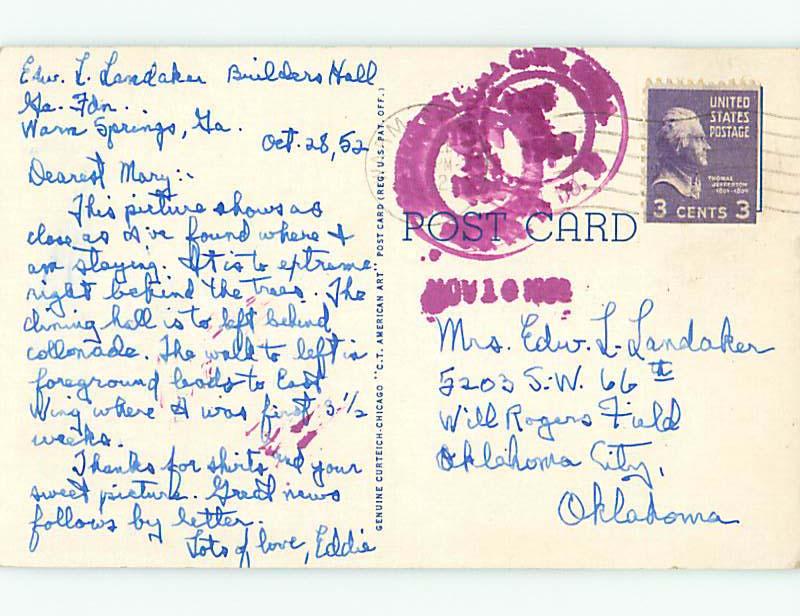 Edw. L. Landaker Builders Hall
Ga. Fdn..
Warm Springs, Ga.
Oct. 28, 52
Dearest Mary:-
This picture shows as
close as I've found where I
am staying. It is to extreme
right behind the trees. The
dining hall is to left behind
collonade. The walk to left in
foreground leads to East
Wing where I was first 3 1/2
weeks.
Thanks for shirts and your
sweet picture. Great news
follows by letter.
Lots of love, Eddie
GENUINE CURTEICH-CHICAGO "C.T. AMERICAN ART" POST CARD (REG. U.S. PAT. OFF.)
UNITED
STATES
POSTAGE
THOMAS
JEFFERSON
1801-1809
3 CENTS 3
POST CARD
NOV 10
Mrs. Edw. L. Landaker
5203 S.W. 66th
Will Rogers Field
Oklahoma City,
Oklahoma